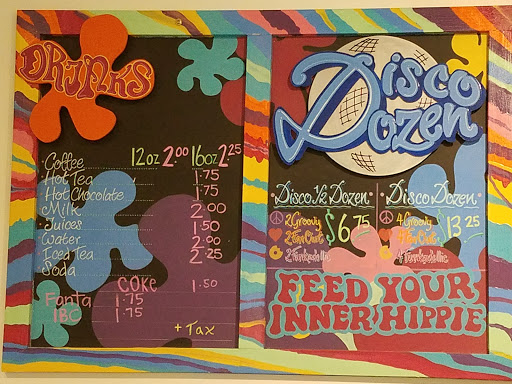 DRINKS
Coffee 12oz 2.00 16oz 2.25
Hot Tea 1.75
Hot Chocolate 1.75
Milk 2.00
Juices 1.50
Water 2.00
Iced Tea 2.25
Soda
COKE 1.50
Fanta 1.75
IBC 1.75
+ Tax
Disco
Dozen
Disco 1/2 Dozen
2 Groovy
2 Far Out
2 Funkadelic
$6.75
Disco Dozen
4 Groovy
4 Far Out
4 Funkadelic
$13.25
FEED YOUR
INNER HIPPIE